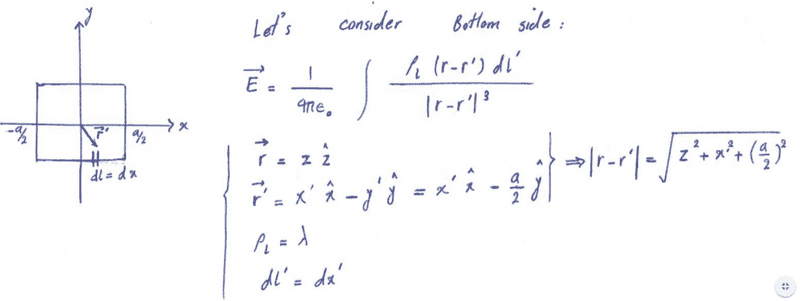 y
x
-a/2
a/2
r⃗'
dl = dx
Let's consider Bottom side :
E⃗ = 1/4πε₀ ∫ ρ_L (r-r') dl' / |r-r'|³
r⃗ = z ẑ
r⃗' = x' x̂ - y' ŷ = x' x̂ - a/2 ŷ ⇒ |r-r'| = √(z² + x'² + (a/2)²)
ρ_L = λ
dl' = dx'